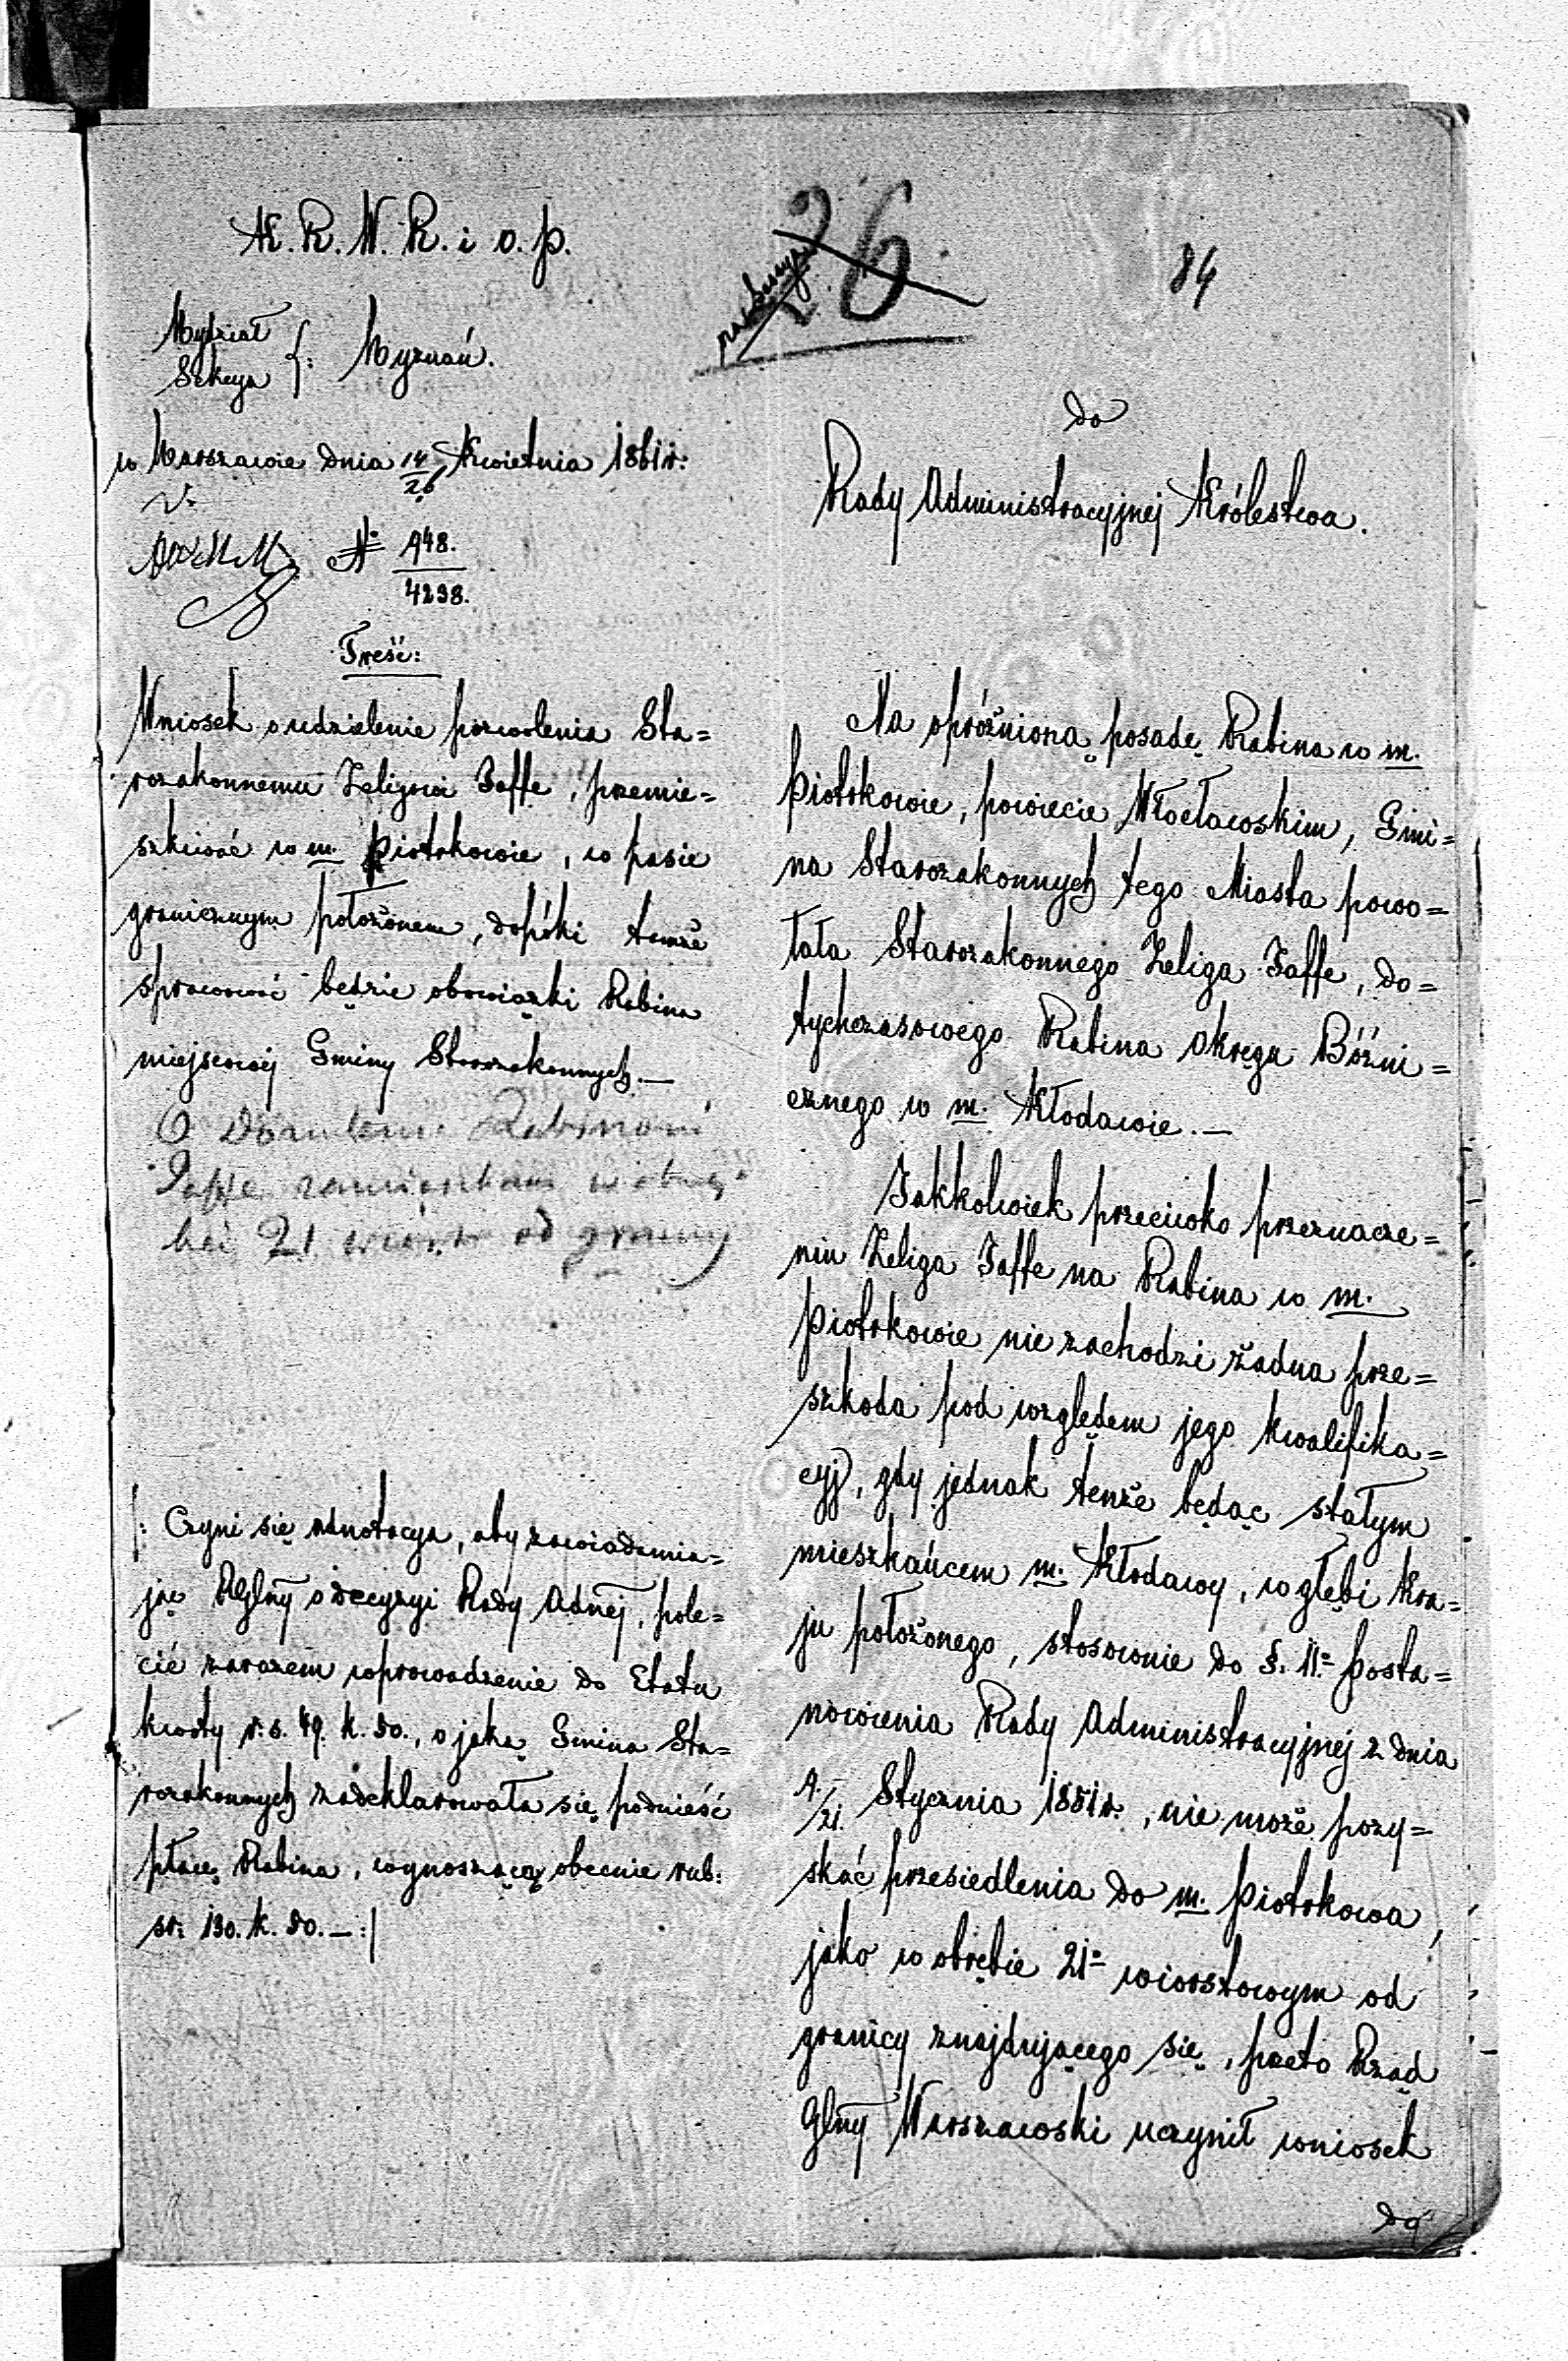 K. R. W. R. i O. P.
26
84
Wydział
Sekcya } : Wyznań.
w Warszawie dnia 14/26 Kwietnia 1861 r:
N: 948.
4238.
Treść:
Wniosek o udzielenie pozwolenia Sta=
rozakonnemu Zeligowi Jaffe, przemie=
szkiwać w m. Piotrkowie, w pasie
granicznym położonem, dopóki tenże
sprawować będzie obowiązki Rabina
miejscowej Gminy Starozakonnych. —
O dozwoleniu Rabinowi
Jaffe zamieszkania w obrę=
bie 21 wiorst od granicy
|: Czyni się adnotacya, aby zawiadamia=
jąc RGlny o decyzyi Rady Adnej, pole=
cić zarazem wprowadzenie do Etatu
kwoty r. s. 49. k. 50., o jaką Gmina Sta=
rozakonnych zadeklarowała się podnieść
płacę Rabina, wynoszącą obecnie rub:
sr: 130. k. 50. — :|
do
Rady Administracyjnej Królestwa.
Na opróżnioną posadę Rabina w m.
Piotrkowie, powiecie Włocławskim, Gmi=
na Starozakonnych tego Miasta powo=
łała Starozakonnego Zeliga Jaffe, do=
tychczasowego Rabina Okręgu Bóźni=
cznego w m. Kłodawie. —
Jakkolwiek przeciwko przeznacze=
niu Zeliga Jaffe na Rabina w m.
Piotrkowie nie zachodzi żadna prze=
szkoda pod względem jego kwalifika=
cyj, gdy jednak tenże będąc stałym
mieszkańcem m. Kłodawy, w głębi kra=
ju położonego, stosownie do §. 11= Posta=
nowienia Rady Administracyjnej z dnia
9./21. Stycznia 1851 r:, nie może pozy=
skać przesiedlenia do m. Piotrkowa,
jako w obrębie 21= wiorstowym od
granicy znajdującego się, przeto Rząd
Glny Warszawski uczynił wniosek
do